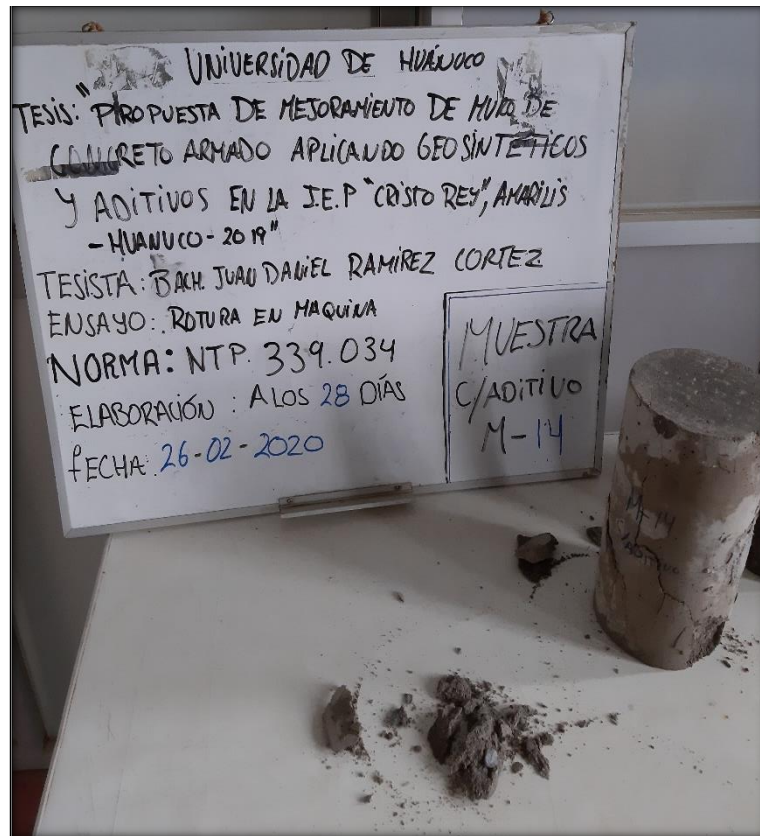 UNIVERSIDAD DE HUÁNUCO
TESIS: "PROPUESTA DE MEJORAMIENTO DE MURO DE
CONCRETO ARMADO APLICANDO GEOSINTÉTICOS
Y ADITIVOS EN LA I.E.P "CRISTO REY", AMARILIS
-HUANUCO-2019"
TESISTA: BACH. JUAN DANIEL RAMIREZ CORTEZ
ENSAYO: ROTURA EN MAQUINA
NORMA: NTP. 339.034
ELABORACIÓN : A LOS 28 DÍAS
FECHA: 26-02-2020
MUESTRA
C/ADITIVO
M-14
M-14
ADITIVO